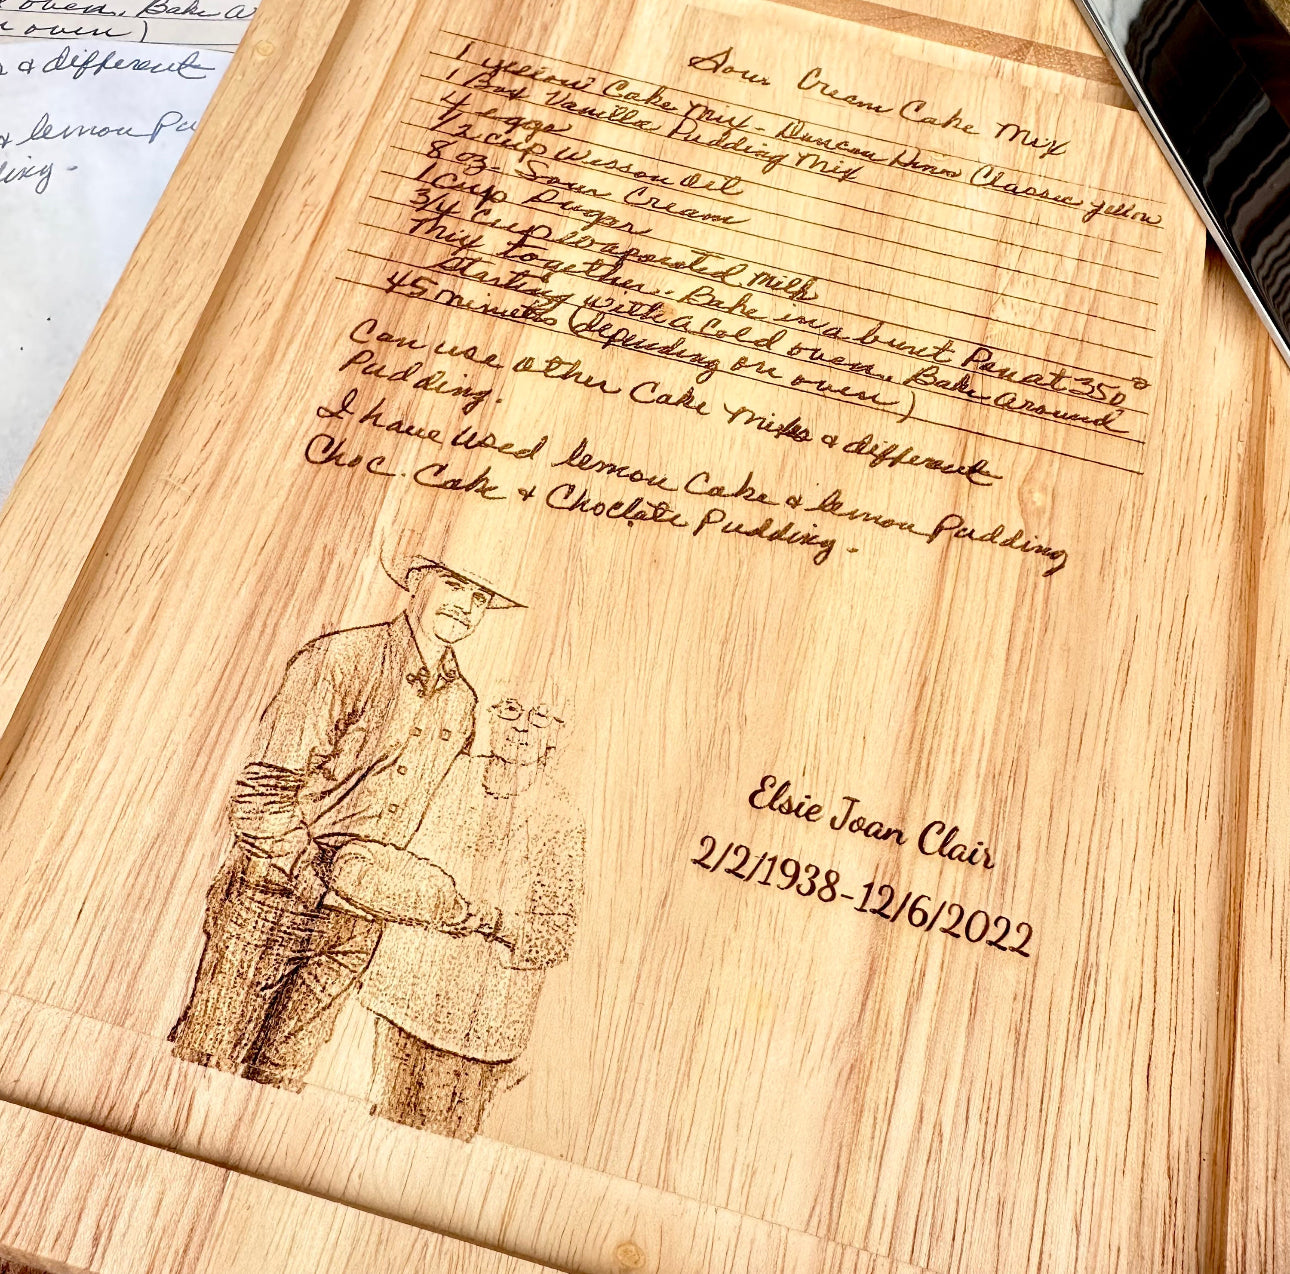 oven. Bake a
n oven)
& different
& lemon Pu
ding.
Sour Cream Cake Mix
1 yellow Cake Mix - Duncan Hines Classic yellow
1 Box Vanilla Pudding Mix
4 eggs
1/2 cup wesson Oil
8 oz. Sour Cream
1 Cup Sugar
3/4 Cup Evaporated Milk
Mix Together. Bake in a bunt Pan at 350°
Starting with a Cold oven. Bake Around
45 minutes (depending on oven)
Can use other Cake Mixes & different
Pudding.
I have used lemon Cake & lemon Pudding
Choc. Cake & Choclate Pudding.
Elsie Joan Clair
2/2/1938-12/6/2022